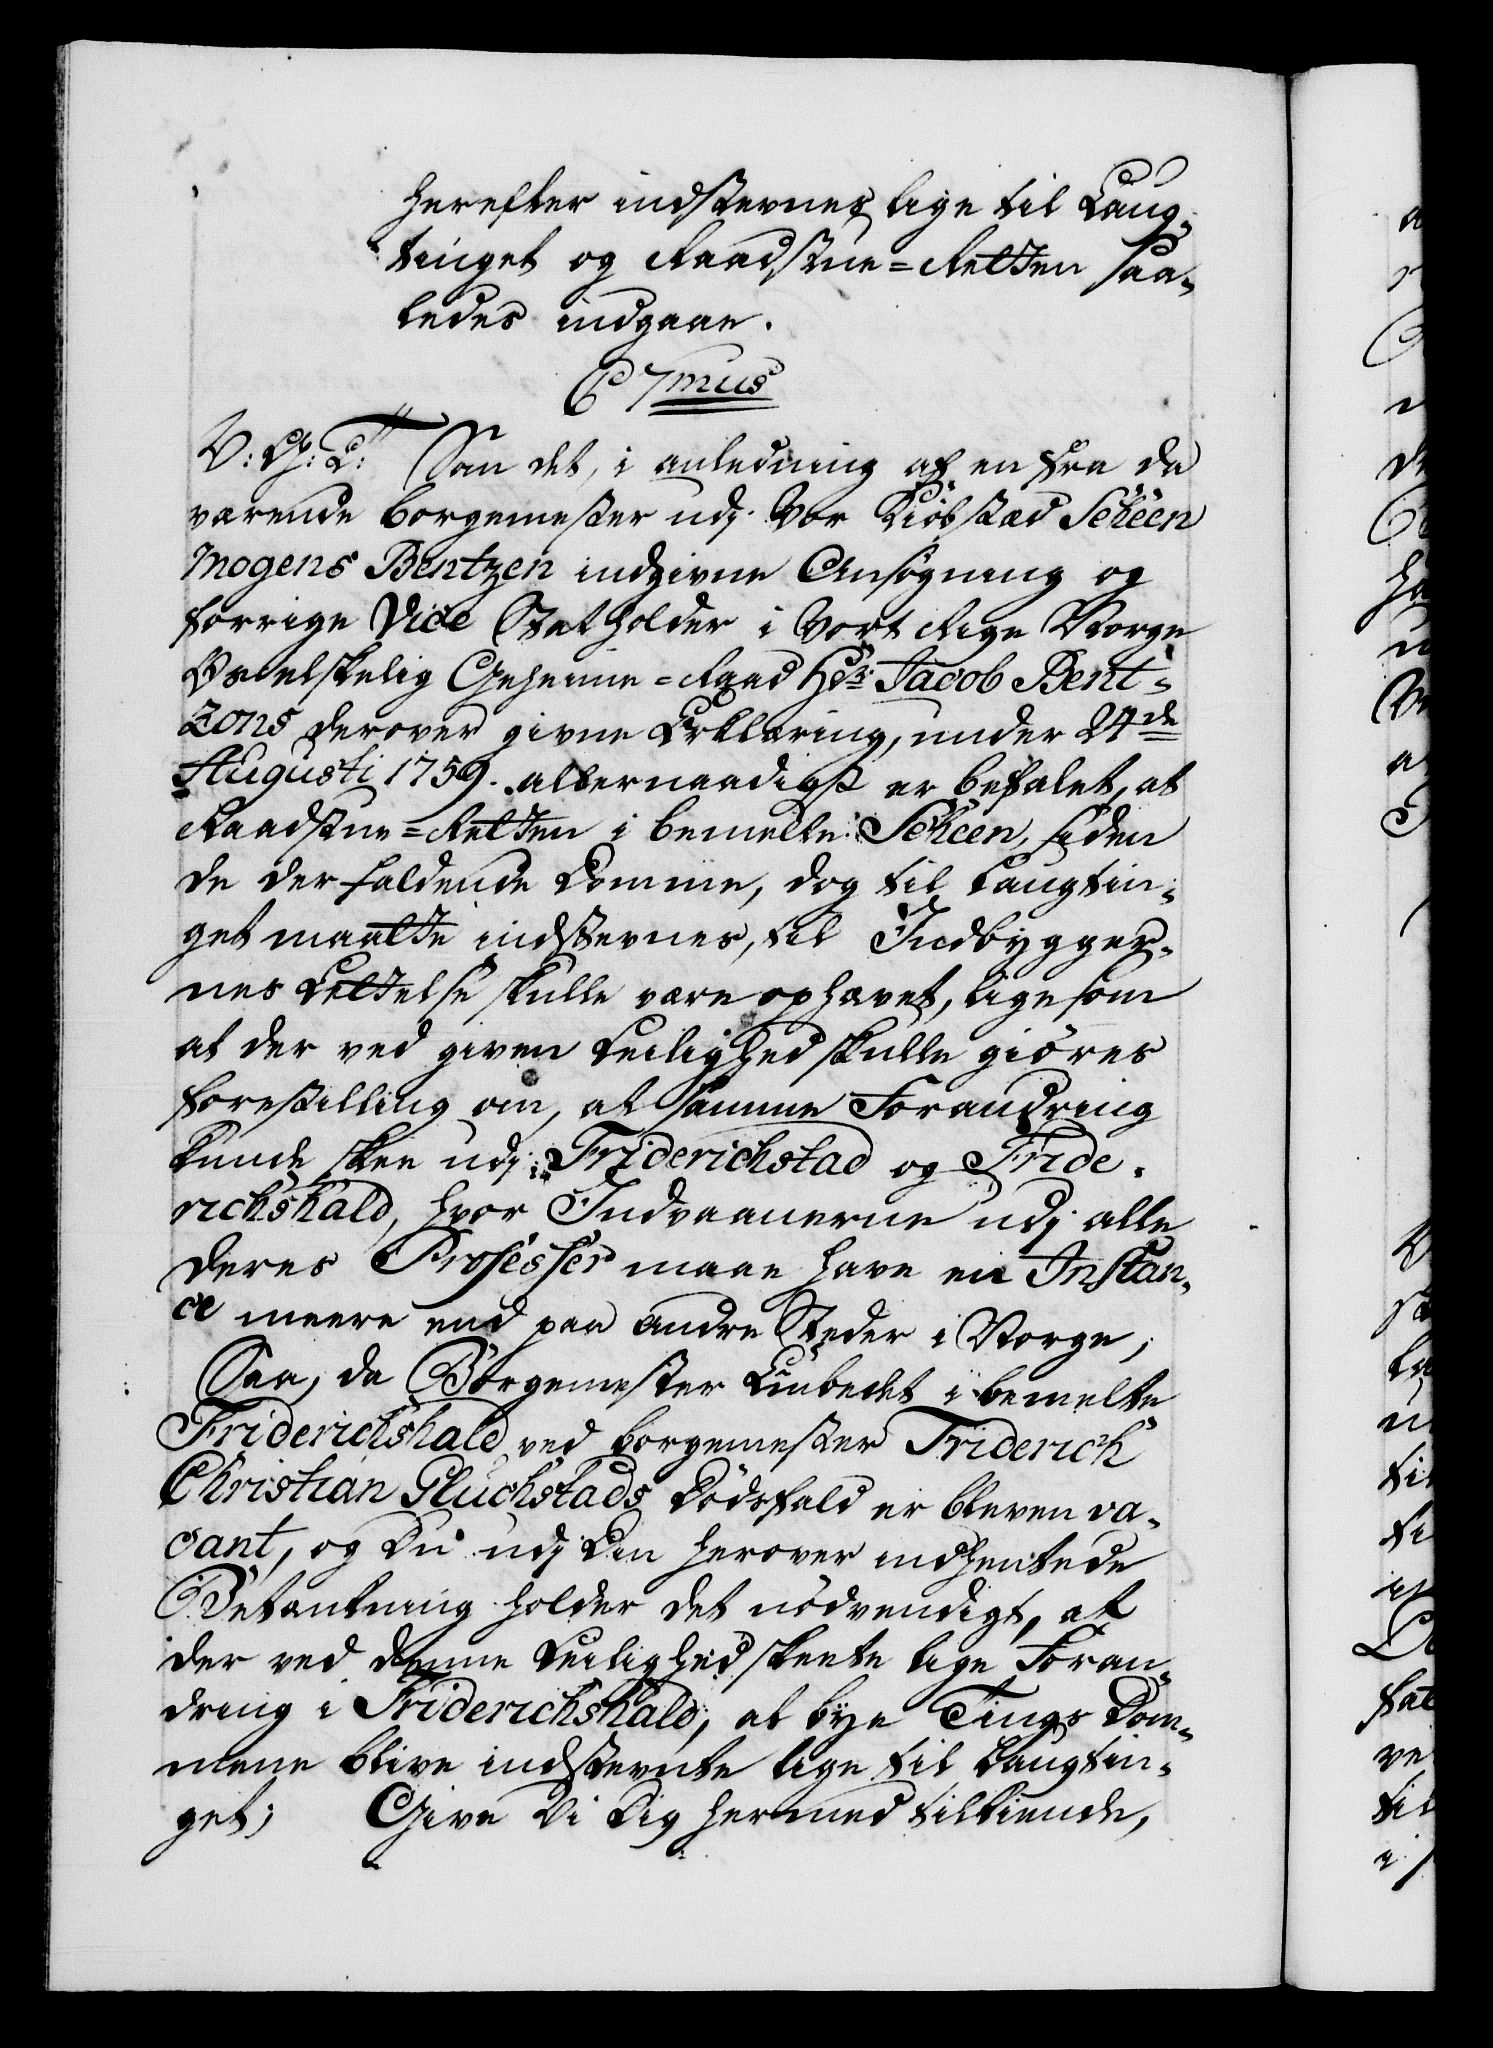 herefter indstevnes lige til Laug-
tinget og Raadstue=Retten saa-
ledes indgaae.
C 7mus
V: G: T: Som det, i anledning af en fra da
værende borgemester udj Vor Kiöbstæd Scheen
Mogens Bentzen indgivne Ansögning og
forrige Vice Statholder i Vort Rige Norge
Os elskelig Geheime=Raad Hr: Jacob Bent-
zons derover givne Erklæring, under 24de
Augusti 1759. allernaadigst er befalet, at
Raadstue=Retten i bemelte Scheen, siden
de der faldende Domme, dog til Laugtin-
get maatte indstevnes, til Indbygger-
nes Lettelse skulle være ophævet, ligesom
at der ved given Leilighed skulle giöres
forestilling om, at samme Forandring
kunde skee udj Friderichstad og Fride-
richshald, hvor Indvaanerne udj alle
deres Processer maae have en Instan-
ce meere end paa andre Steder i Norge;
Saa, da Borgemester Embedet i bemelte
Friderichshald ved borgemester Friderich
Christian Gluchstads Dödsfald er bleven va-
cant, og Du udj Din herover indhentede
Betænkning holder det nödvendigt, at
der ved denne Leilighed skeete lige Foran-
dring i Friderichshald, at bye Tings Dom-
mene blive indstevnte lige til Laugtin-
get; Give Vi Dig hermed tilkiende,